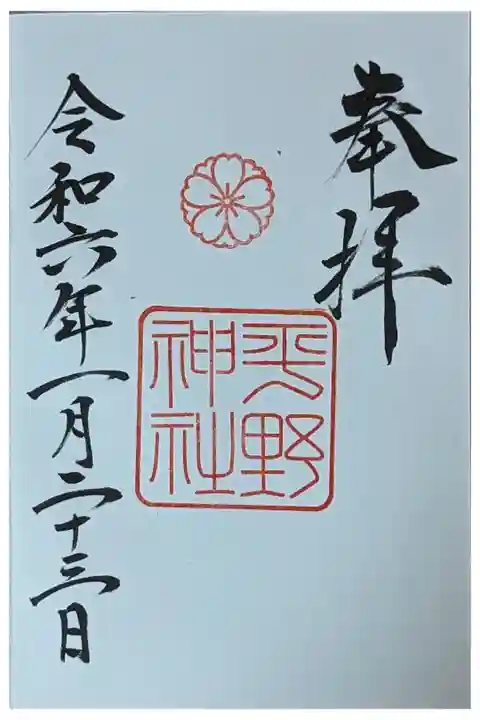 奉拝
平野
神社
令和六年一月二十三日